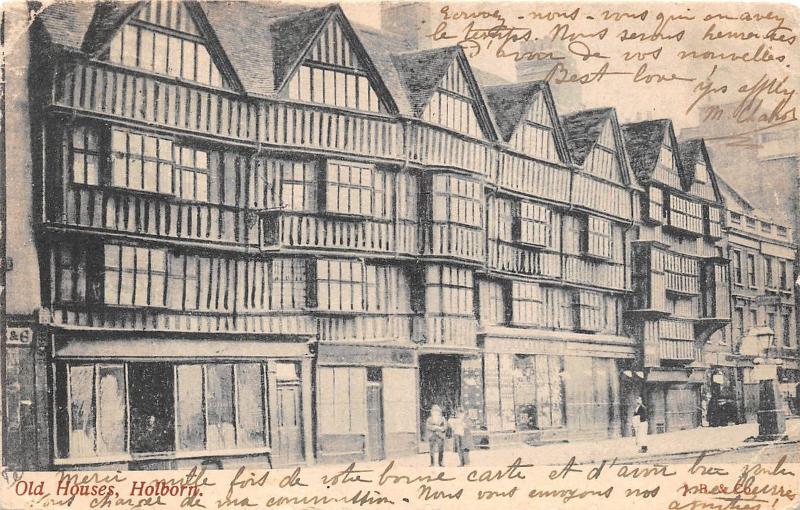 Ecrivez-nous-vous qui en avez
le temps. Nous serons heureuses
d'avoir de vos nouvelles.
Best love
Yrs affly
M.
& 6
Merci mille fois de votre bonne carte et d'avoir bien voulu
vous charger de ma commission - Nous vous envoyons nos meilleures
amitiés!
Old Houses, Holborn.
J. B. & Co.